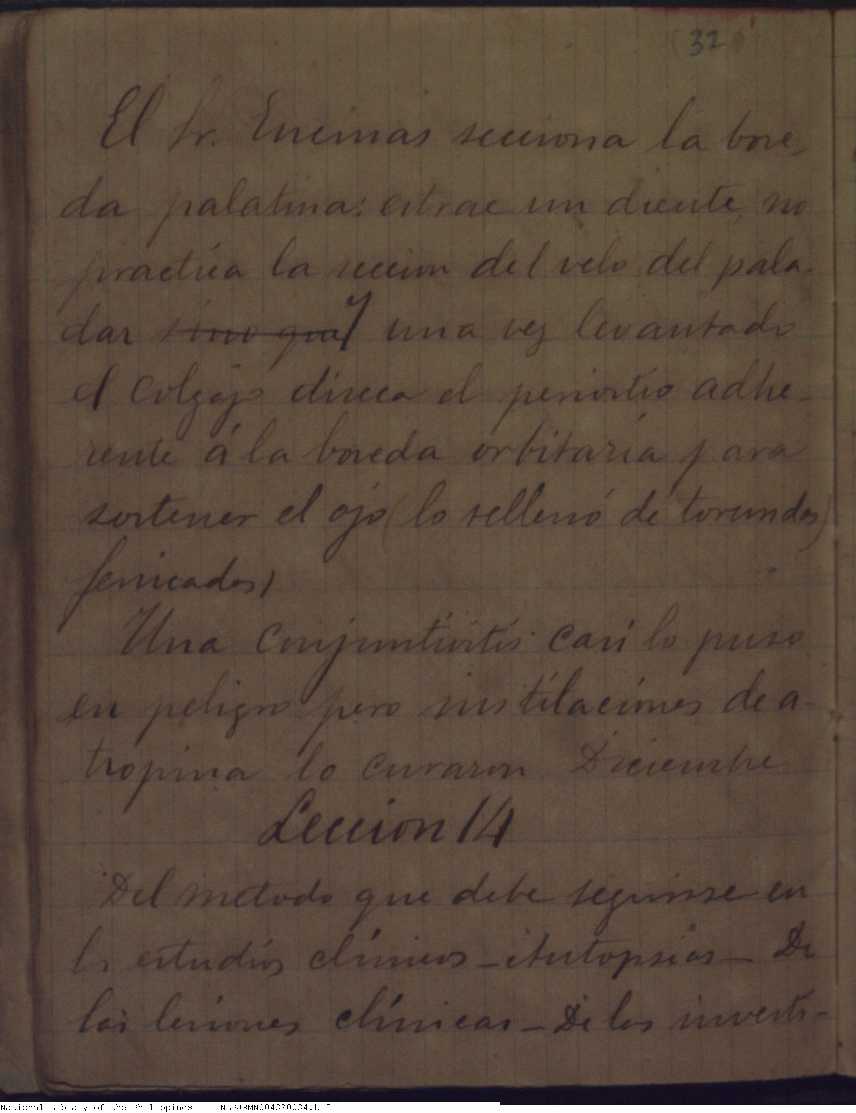 32
El Sr. Encinas secciona la bove-
da palatina: estrae un diente, no
practica la seccion del velo del pala-
dar sino que y una vez levantado
el colgajo diseca el periostio adhe-
rente á la boveda orbitaria para
sostener el ojo (lo rellenó de torundas)
fenicadas)
Una conjuntivitis casi lo puso
en peligro pero instilaciones de a-
tropina lo curaron Diciembre
Leccion 14
Del metodo que debe seguirse en
los estudios clínicos - Autopsias - De
las lesiones clínicas - De las investi-
National Library of the Philippines